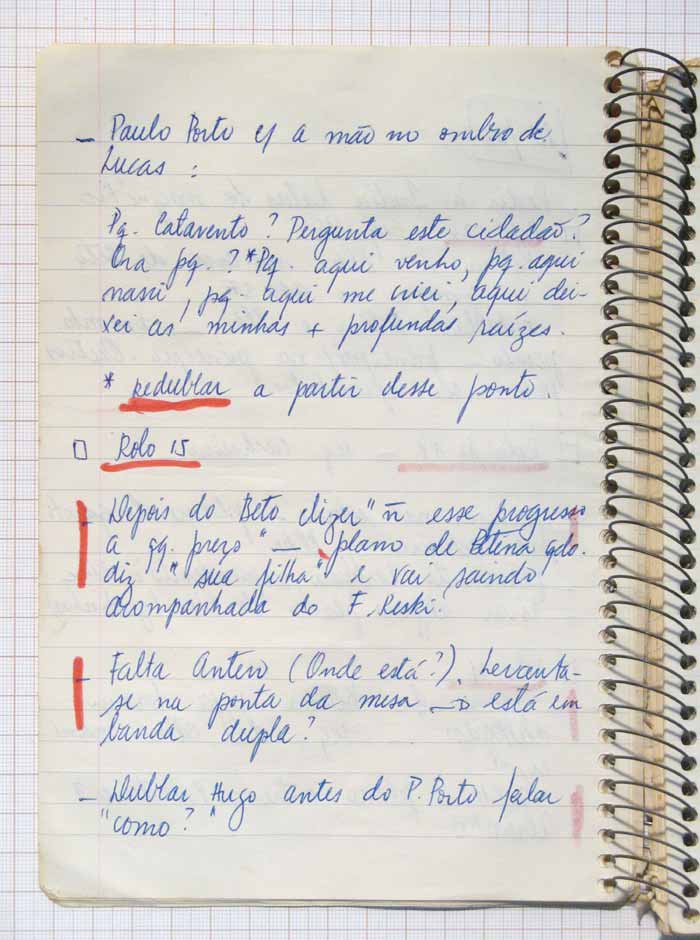 – Paulo Porto c/ a mão no ombro de
Lucas :
Pq. Catavento ? Pergunta este cidadão ?
Ora pq. ? *Pq. aqui venho, pq. aqui
nasci, pq. aqui me criei, aqui dei-
xei as minhas + profundas raízes.
* redublar a partir desse ponto.
□ Rolo 15
– Depois do Beto dizer "ñ esse progresso
a qq. preço" — plano de Betina qdo.
diz "sua filha" e vai saindo
acompanhada do F. Reski.
– Falta Antero (Onde está?). Levanta-
se na ponta da mesa → está em
banda dupla?
– Dublar Hugo antes do P. Porto falar
"como ?"